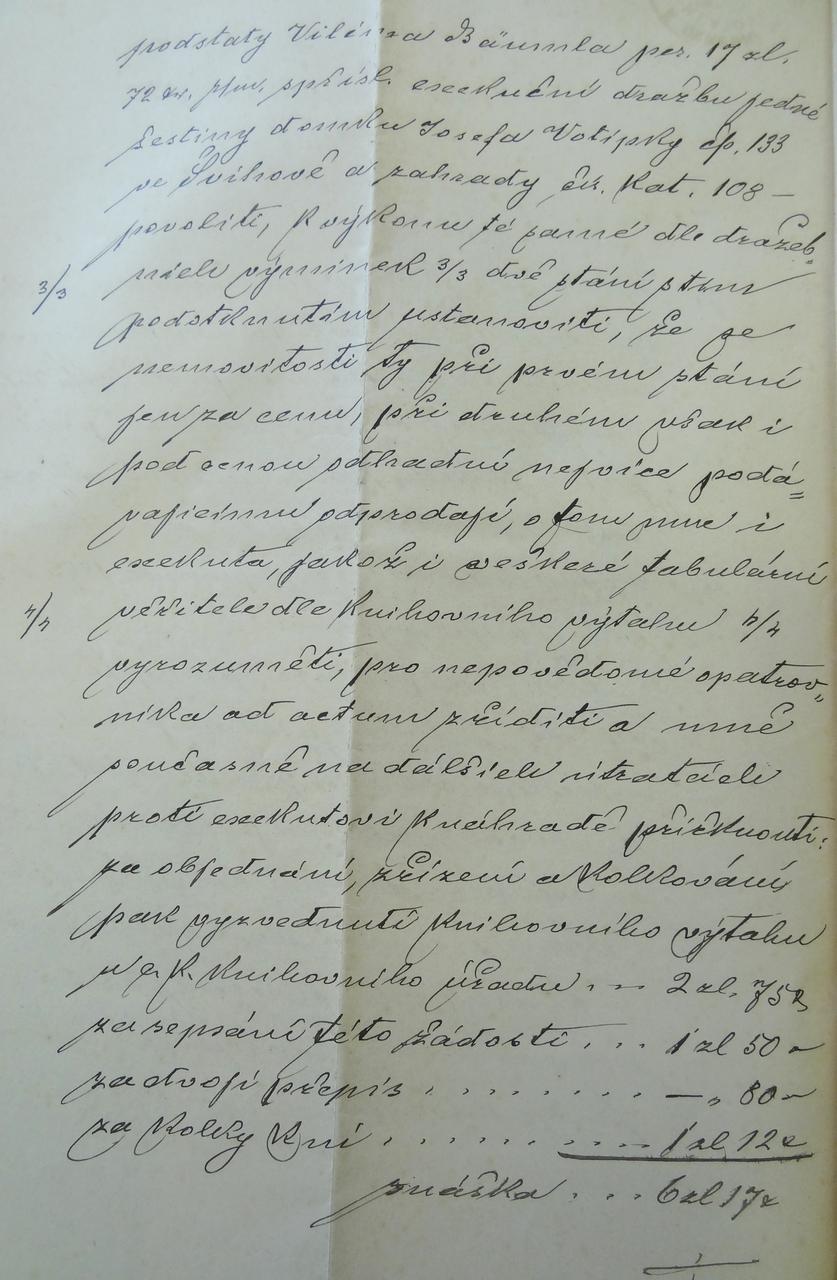 podstaty Viléma Bäumla per. 17 zl.
72 kr. s přísl. exekuční dražbu jedné
šestiny domku Josefa Votipky čp. 133
ve Švihově a zahrady čís. kat. 108 —
povoliti, k výkonu té samé dle dražeb=
ních výminek 3/3 dvě stání s tím
3/3
podotknutím ustanoviti, že se
nemovitosti ty při prvém stání
jen za cenu, při druhém však i
pod cenou odhadní nejvíce podá=
vajícímu odprodají, o tom mne i
exekuta, jakož i veškeré tabulární
věřitele dle knihovního výtahu 4/4
4/4
vyrozuměti, pro nepovědomé opatrov„
níka ad actum zříditi a mně
současně na dalších útratách
proti exekutovi k náhradě přiřknouti:
za objednání, zřízení a kolkování
pak vyzvednutí knihovního výtahu
u c. k. knihovního úřadu . — 2 zl. 75 k
za sepsání této žádosti . . . 1 zl 50 „
za dvojí přepis . . . . . . . . — „ 80 „
za kolky k ní . . . . . . . . . . 1 zl 12 k
snáška . . . 6 zl 17 k